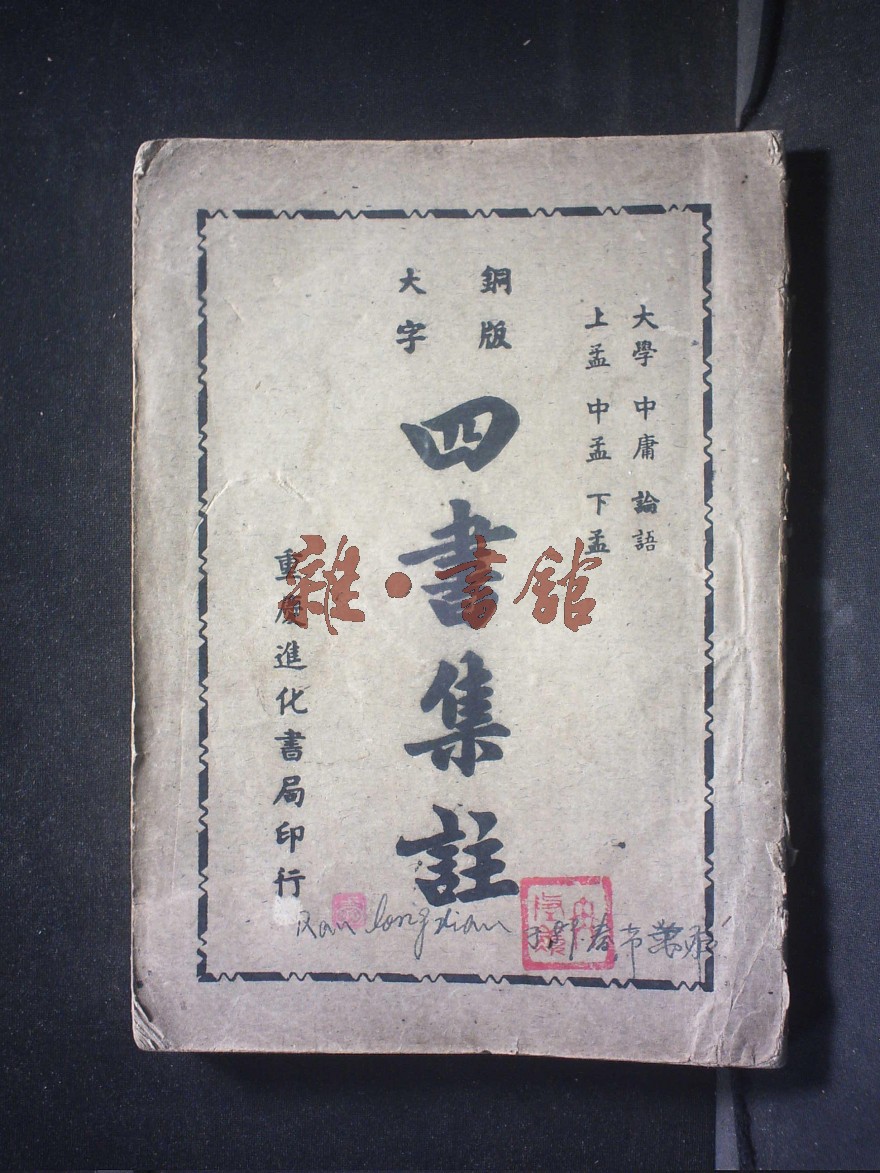 大學 中庸 論語
上孟 中孟 下孟
銅版
大字
四書集註
重慶進化書局印行
雜·書館
Ran longxian
春节